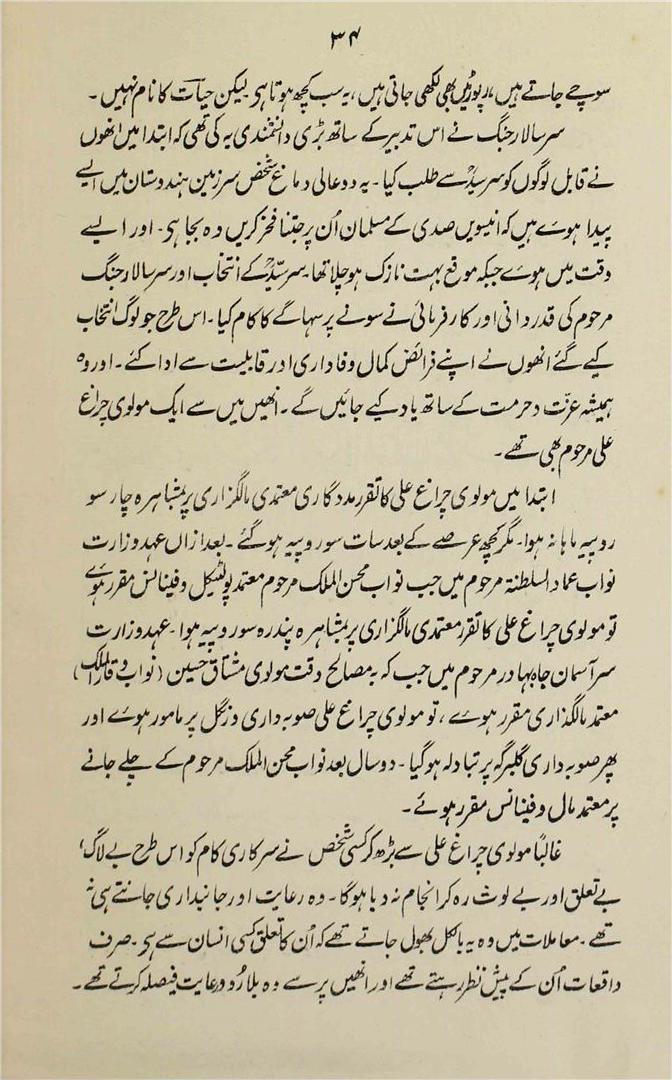 ۳۴
سوچے جاتے ہیں، رپورٹیں بھی لکھی جاتی ہیں، یہ سب کچھ ہوتا ہی لیکن حیات کا نام نہیں۔
سر سالار جنگ نے اس تدبیر کے ساتھ بڑی دانشمندی یہ کی تھی کہ ابتدا میں انھوں
نے قابل لوگوں کو سرسیدؒ سے طلب کیا۔ یہ دو عالی دماغ شخص سرزمین ہندوستان میں ایسے
پیدا ہوے ہیں کہ انیسویں صدی کے مسلمان اُن پر جتنا فخر کریں وہ بجا ہی۔ اور ایسے
وقت میں ہوے جبکہ موقع بہت نازک ہو چلا تھا۔ سرسیدؒ کے انتخاب اور سر سالار جنگ
مرحوم کی قدردانی اور کارفرمائی نے سونے پر سہاگے کا کام کیا۔ اس طرح جو لوگ انتخاب
کیے گئے انھوں نے اپنے فرائض کمال وفاداری اور قابلیت سے ادا کئے۔ اور وہ
ہمیشہ عزّت و حرمت کے ساتھ یاد کیے جائیں گے۔ انھیں میں سے ایک مولوی چراغ
علی مرحوم بھی تھے۔
ابتدا میں مولوی چراغ علی کا تقرر مددگاری معتمدی مالگزاری پر بمشاہرہ چار سو
روپیہ ماہانہ ہوا۔ مگر کچھ عرصے کے بعد سات سو روپیہ ہو گئے۔ بعد ازاں عہد وزارت
نواب عماد السلطنۃ مرحوم میں جب نواب محسن الملک مرحوم معتمد پولٹیکل و فینانس مقرر ہوے
تو مولوی چراغ علی کا تقرر معتمدی مالگزاری پر بمشاہرہ پندرہ سو روپیہ ہوا۔ عہد وزارت
سر آسمان جاہ بہادر مرحوم میں جب کہ بہ مصالح وقت مولوی مشتاق حسین (نواب وقار الملک)
معتمد مالگذاری مقرر ہوے، تو مولوی چراغ علی صوبہ داری ورنگل پر مامور ہوے اور
پھر صوبہ داری گلبرگہ پر تبادلہ ہو گیا۔ دو سال بعد نواب محسن الملک مرحوم کے چلے جانے
پر معتمد مال و فینانس مقرر ہوئے۔
غالباً مولوی چراغ علی سے بڑھ کر کسی شخص نے سرکاری کام کو اس طرح بے لاگ،
بے تعلق اور بے لوث رہ کر انجام نہ دیا ہوگا۔ وہ رعایت اور جانبداری جانتے ہی نہ
تھے۔ معاملات میں وہ یہ بالکل بھول جاتے تھے کہ اُن کا تعلق کسی انسان سے ہی۔ صرف
واقعات اُن کے پیش نظر رہتے تھے اور انھیں پر سے وہ بلا رُو و رعایت فیصلہ کرتے تھے۔